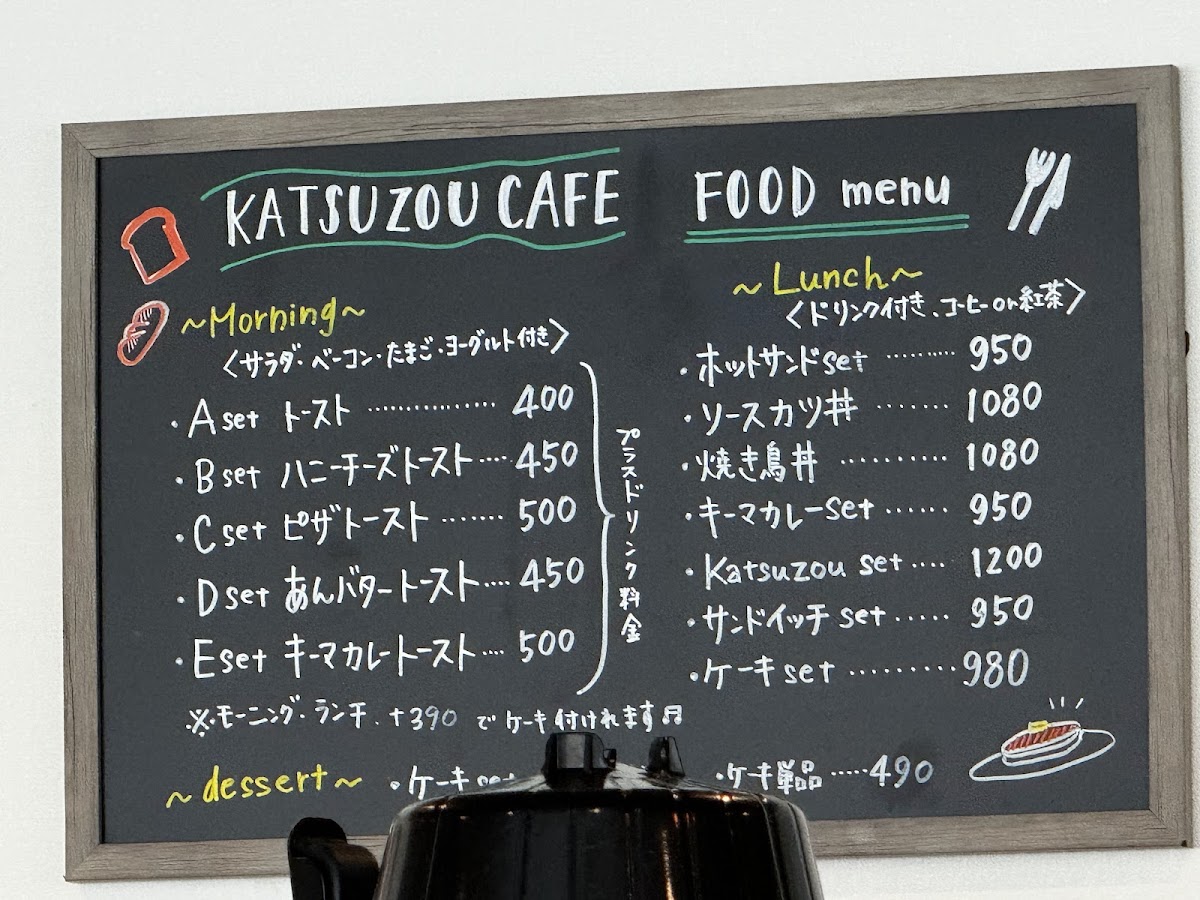 KATSUZOU CAFE FOOD menu
~Morning~
〈サラダ・ベーコン・たまご・ヨーグルト付き〉
・A set トースト ……………… 400
・B set ハニーチーズトースト …… 450
・C set ピザトースト ……… 500
・D set あんバタートースト …… 450
・E set キーマカレートースト …… 500
プラスドリンク料金
※モーニング・ランチ +390 でケーキ付けれます♬
~Lunch~
〈ドリンク付き、コーヒー or 紅茶〉
・ホットサンド set ……… 950
・ソースカツ丼 ……… 1080
・焼き鳥丼 ……… 1080
・キーマカレー set …… 950
・Katsuzou set …… 1200
・サンドイッチ set …… 950
・ケーキ set ……… 980
~dessert~ ・ケーキ set ・ケーキ単品 …… 490